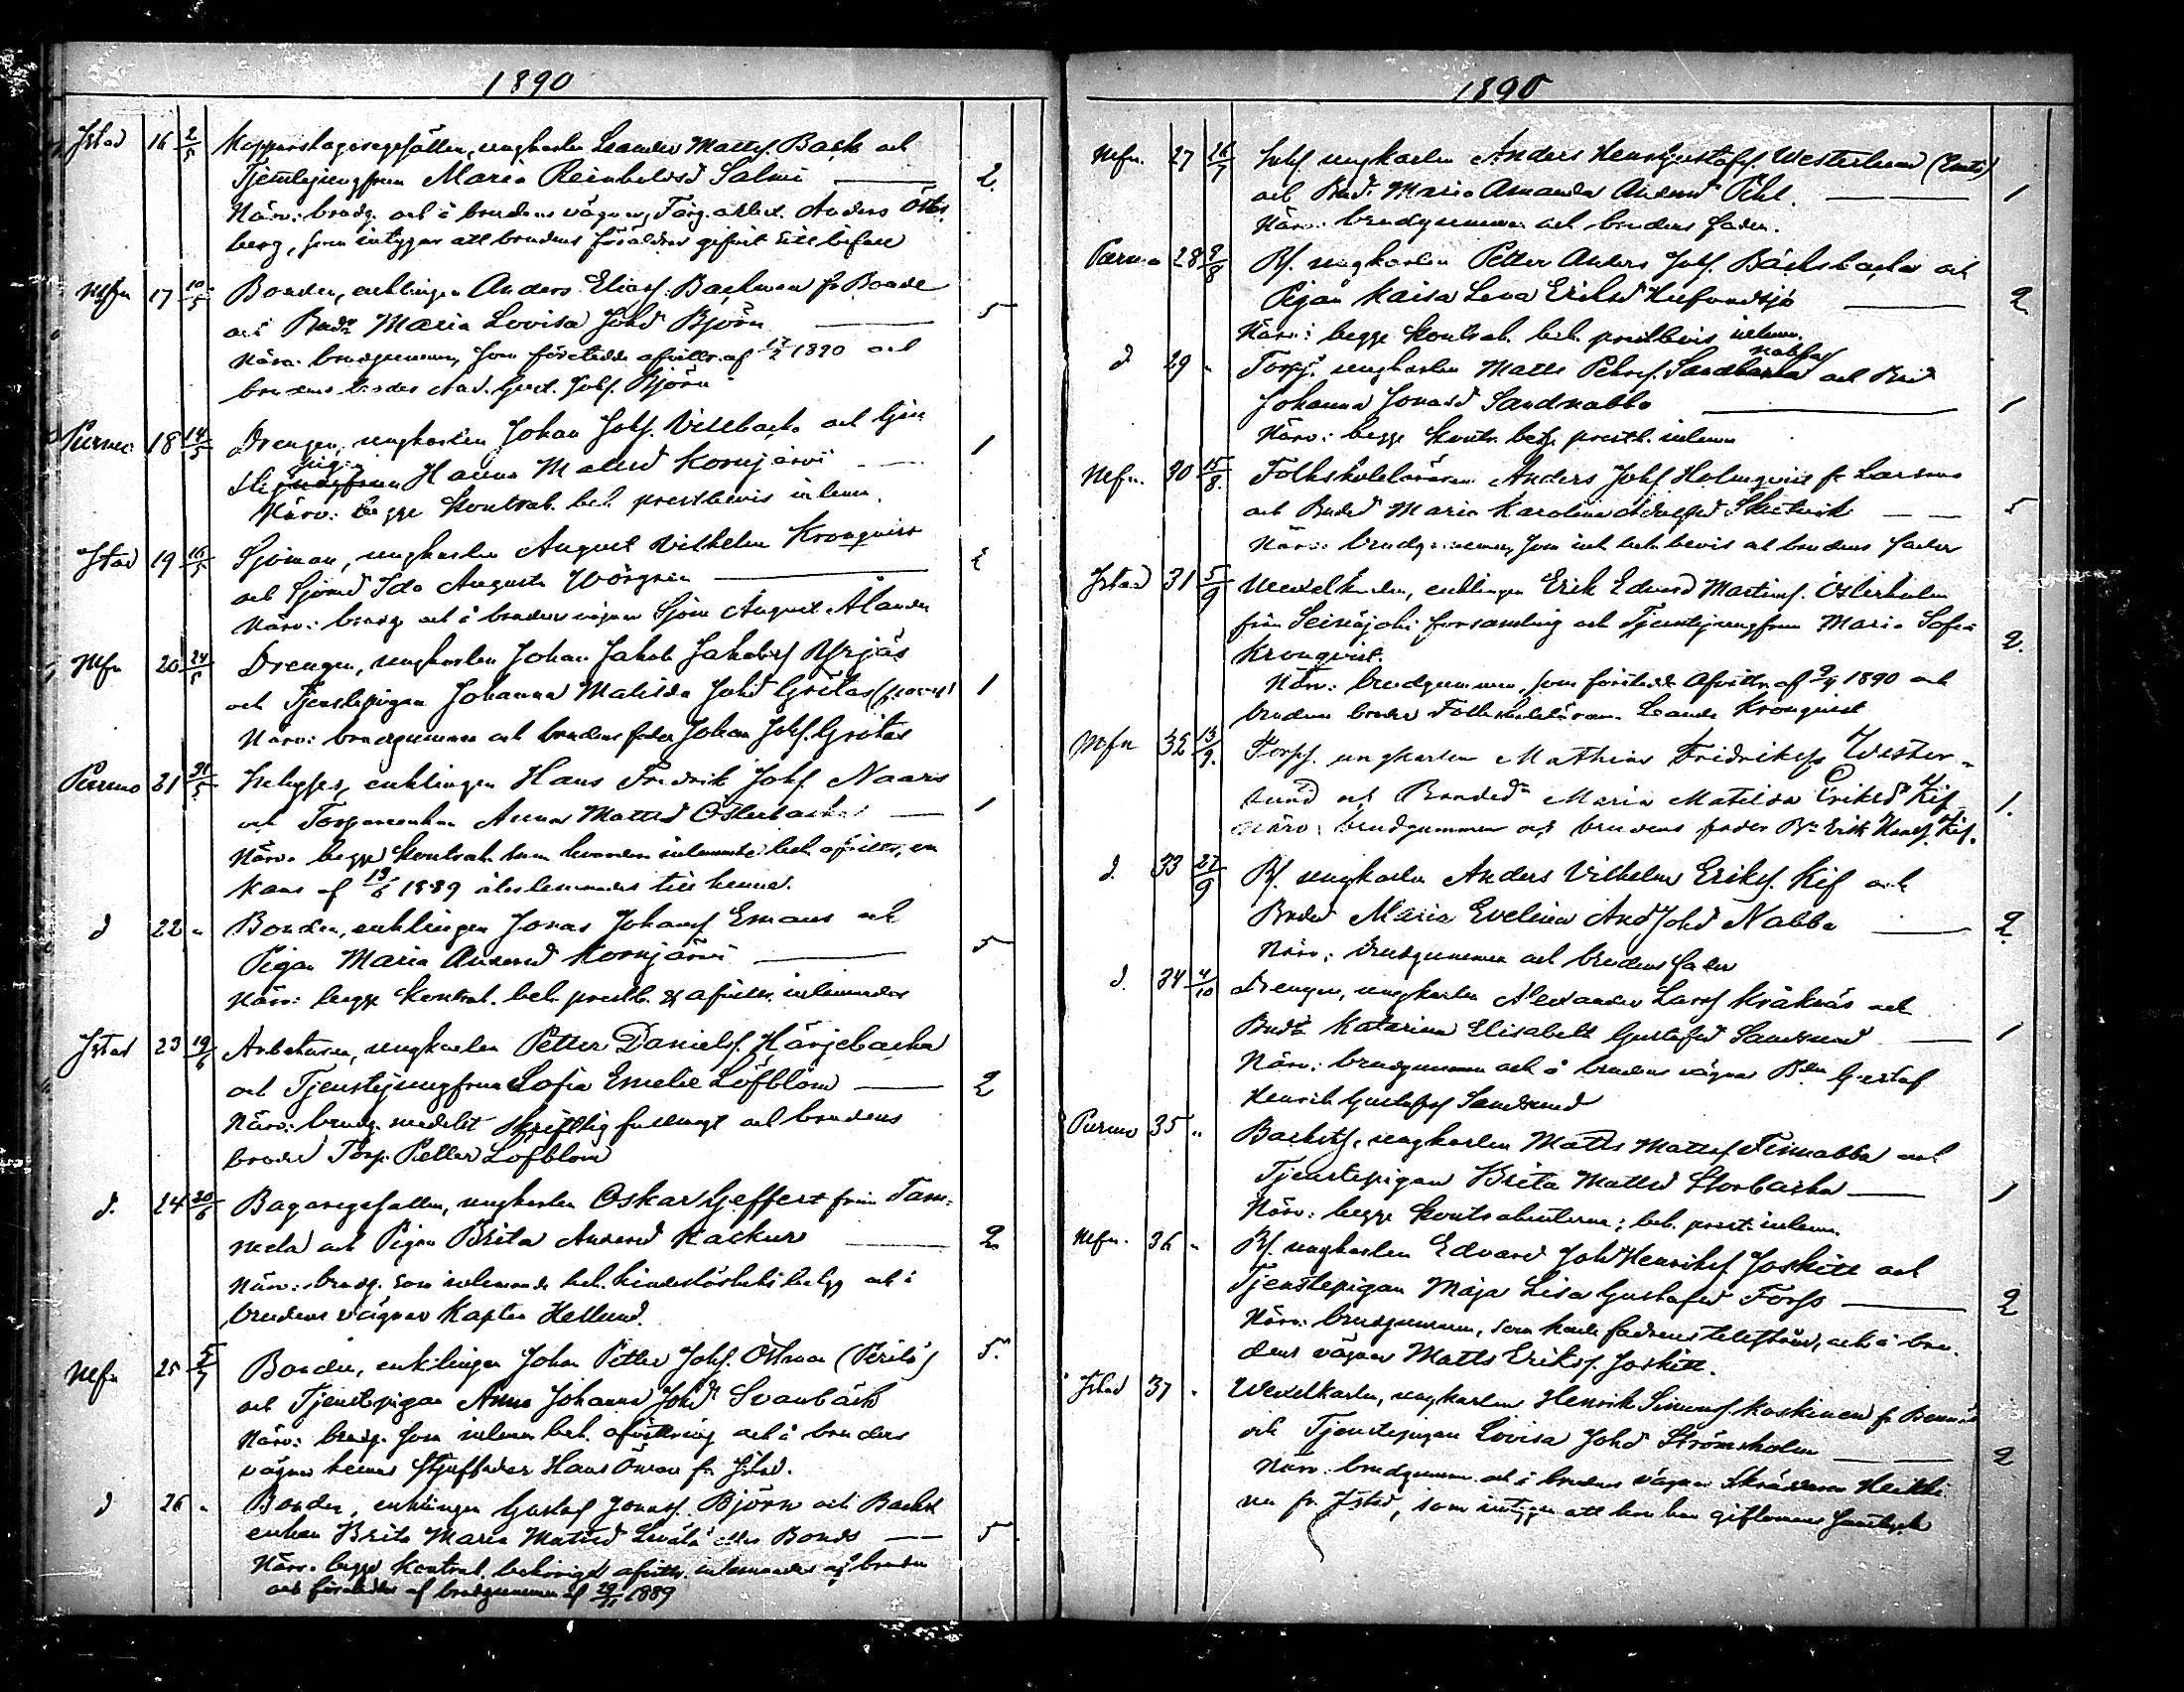 1890
Jstad 16 2/5 Kopparslagaregesällen, ungkarlen Leander Mattsf. Back och
Tjenstejungfrun Maria Reinholdsd Salmi — 2.
Närv: brudg. och å brudens vägnar, Färg. arbet. Anders Öster
berg, som intygar att brudens föräldrar gifvit sitt bifall
Nfn 17 10/5 Bonden, enklingen Anders Eliasf. Backman fr
och Bndr Maria Lovisa Johd Björn — 5
Närv: brudgummen, som företedde afvittr. af 17/2 1890 och
brudens broder And. Gust. Johf. Björn
Purmo 18 14/5 Drengen, ungkarlen Johan Johf. Villbacka och tjen
stepigan Hanna Mattsd Kornjärvi — 1
Närv: begge Kontrah. beh. prestbevis inlemn.
Jstad 19 16/5 Sjöman, ungkarlen August Vilhelm Kronqvist
och Sjömd Ida Augusta — 2
Närv: brudg och å brudens vägnar Sjöm August Ålander
Nfn 20 24/5 Drengen, ungkarlen Johan Jakob Jakobsf Yrjäs
och Tjenstepigan Johanna Matilda Johd Grötas 1
Närv: brudgummen och brudens fader Johan Johf. Grötas
Purmo 21 31/5 Inhyses, enklingen Hans Fredrik Johf. Naars
och Torpareenkan Anna Mattsd Österbacka — 1
Närv. begge Kontrah. som hvardera inlemnade beh. afvittr.
hans af 13/6 1889 återlemnades till henne.
d 22 " Bonden, enklingen Jonas Johansf Emaus och
Pigan Maria Andersd Kornjärvi — 5
Närv: begge Kontrah. beh. prestb. & afvittr. inlemnades
Jstad 23 19/6 Arbetaren, ungkarlen Petter Danielsf. Härjebacka
och Tjenstejungfrun Sofia Emelie Löfblom — 2
Närv: brudg. medelst skriftlig fullmagt och brudens
broder Torp. Petter Löfblom
d. 24 20/6 Bagaregesällen, ungkarlen Oskar Geffert från Tam-
mela och Pigan Brita Andersd Kackur — 2
Närv: brudg. som inlemnade beh. hinderlöshets betyg och å
brudens vägnar Kapten Hellund.
Nfn 25 5/7 Bonden, enklingen Johan Petter Johf. Östman 5.
och Tjenstepigan Anna Johanna Johd Svanbäck
Närv: brudg. som inlemn beh. afvittring och å brudens
vägnar hennes styffader Hans Öman fr Jstad.
d 26 " Bonden, enklingen Gustaf Jonasf. Björn och Backst
enkan Brita Maria Mattsd eller Bonds — 5
Närv. begge Kontrah. behöriget afvittr. inlemnades af bruden
och företeddes af brudgummen af 29/11 1889
1890
Nfn. 27 26/7 Inhf ungkarlen Anders Henrikgustafsf Westerlund
och Bnd. Maria Amanda Andersd Pihl. — 1
Närv: brudgummen och brudens fader.
Purmo 28 9/8 Bf. ungkarlen Petter Anders Johf. Bäcksbacka och
Pigan Kaisa Lena Eriksd Hufvudsjö — 2
Närv: begge Kontrah. beh. prestbevis inlemn.
d 29 " Torpf. ungkarlen Matts Pehrsf. Sandbacka och Bnd
nabba
Johanna Jonasd Sandnabba — 1
Närv: begge Kontr. beh. prestb. inlemn
Nfn. 30 15/8. Folkskoleläraren Anders Johf Holmqvist fr Larsmo
och Bnded Maria Karolina Adolfsd Skutnik — 5
Närv: brudgummen, som inl. beh. bevis och brudens fader
Jstad 31 5/9 Wexelkarlen, enklingen Erik Edvard Martinsf. Österholm
från Seinäjoki församling och Tjenstejungfrun Maria Sofia
Kronqvist. 2.
Närv: brudgummen, som företedde afvittr. af 9/4 1890 och
brudens broder Folkskoleläraren Leander Kronqvist
Nfn 32 13/9. Torpf. ungkarlen Mathias Fredriksf Wester-
lund och Bonded Maria Matilda Eriksd Kif 1.
Närv: brudgummen och brudens fader Bn Erik Hansf. Kif.
d. 33 27/9 Bf. ungkarlen Anders Vilhelm Eriksf. Kif och
Bnded Maria Evelina And.Johd Nabba — 2
Närv: brudgummen och brudens fader
d. 34 4/10 Drengen, ungkarlen Alexander Larsf Kråknäs och
Bnd Katarina Elisabet Gustafsd Sandsund — 1
Närv: brudgummen och å brudens vägnar Bdn Gustaf
Henrik Gustafsf Sandsund
Purmo 35 " Backstf. ungkarlen Matts Mattsf Finnabba och
Tjenstepigan Brita Mattsd Storbacka — 1
Närv: begge Kontrahenterna; beh. prest. inlemn
Nfn. 36 " Bf. ungkarlen Edvard Joh.Henriksf. Joskitt och
Tjenstepigan Maja Lisa Gustafsd Forss — 2
Närv: brudgummen, som hade fadrens tillstånd, och å bru-
dens vägnar Matts Eriksf. Joskitt.
Jstad 37 " Wexelkarlen, ungkarlen Henrik Simonsf. Koskinen fr Bennäs
och Tjenstepigan Lovisa Johd Strömsholm — 2
Närv: brudgummen och å brudens vägnar Skräddaren Heikki
nen fr Jstad, som intygar att hon har giftomans samtycke